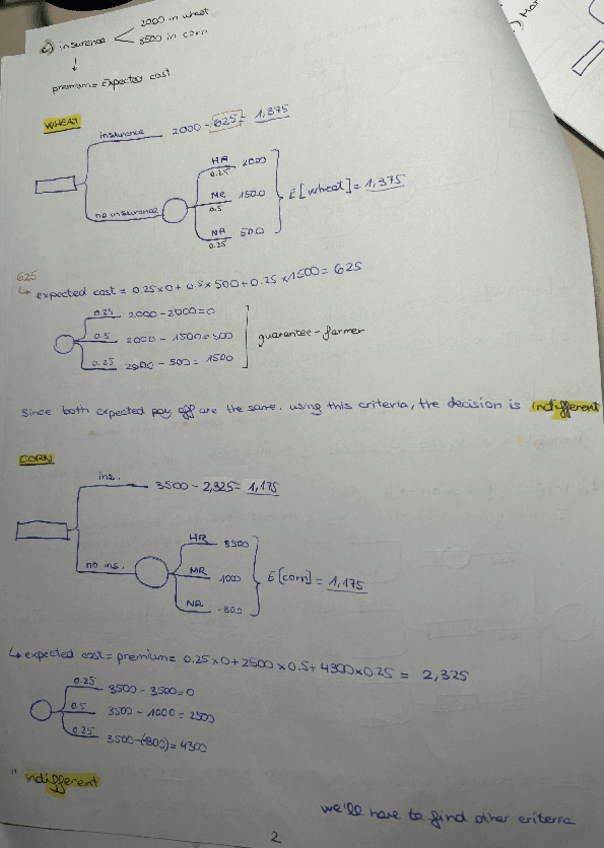 c) insurance < 2000 in wheat
3500 in corn
↓
premium = Expected cost
WHEAT
insurance 2000 - 625 = 1,375
HR 2000
0.25
MR 1500
0.5
no insurance
NR 500
0.25
E[wheat] = 1,375
625
↳ expected cost = 0.25x0 + 0.5x500 + 0.25x1500 = 625
0.25 2000-2000=0
0.5 2000 - 1500 = 500
0.25 2000 - 500 = 1500
guarantee - farmer
Since both expected pay off are the same, using this criteria, the decision is indifferent
CORN
ins. 3500 - 2,325 = 1,175
HR 3500
no ins. MR 1000
NR -800
E[corn] = 1,175
↳ expected cost = premium = 0.25x0 + 2500x0.5 + 4300x0.25 = 2,325
0.25 3500 - 3500 = 0
0.5 3500 - 1000 = 2500
0.25 3500-(-800) = 4300
" indifferent
we'll have to find other criteria
2